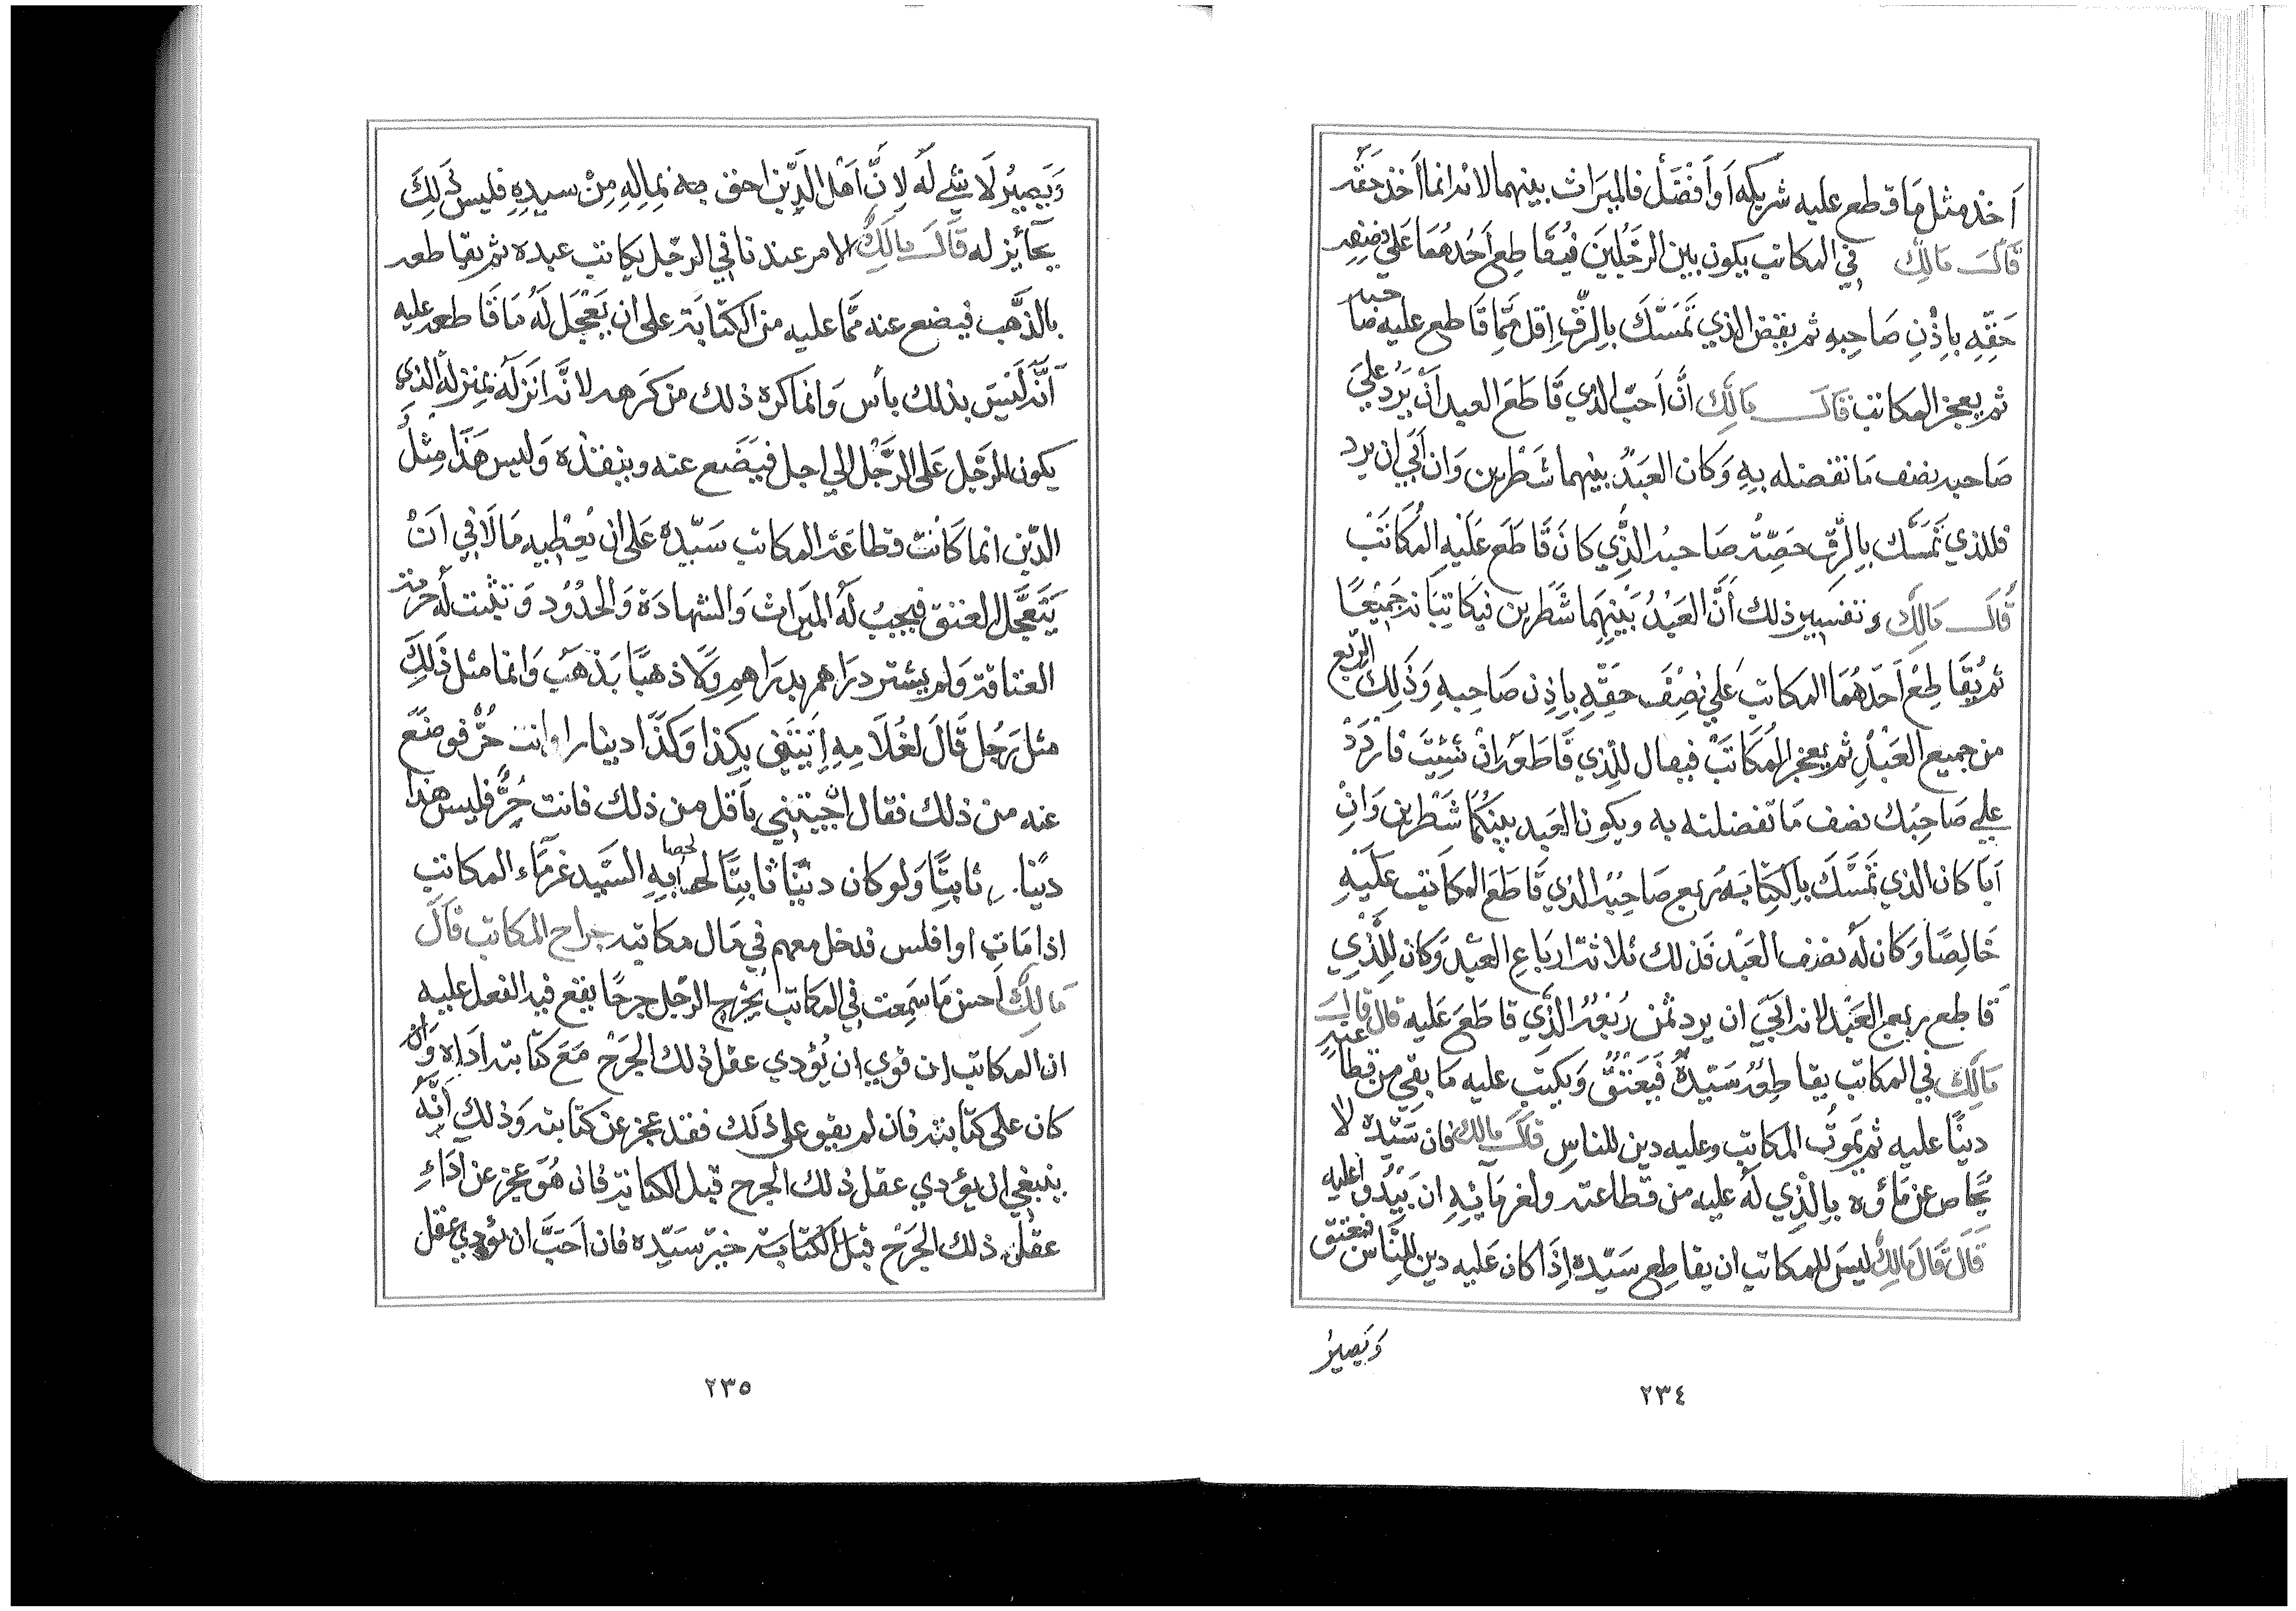 أخذ مثل ما قطع عليه شريكه أو أفضل فالميراث بينهما لانه انما أخذ حقه
قال مالك في المكاتب يكون بين الرجلين فيقاطع أحدهما على نصف
حقه بإذن صاحبه ثم يقبض الذي تمسك بالرق اقل مما قاطع عليه صاحبه
ثم يعجز المكاتب قال مالك ان أحب الذي قاطع العبد أن يرد على
صاحبه نصف ما تفضله به وكان العبد بينهما شطرين وان أبى ان يرد
فللذي تمسك بالرق حصة صاحبه الذي كان قاطع عليه المكاتب
قال مالك وتفسير ذلك أن العبد بينهما شطرين فيكاتبانه جميعا
ثم يقاطع أحدهما المكاتب على نصف حقه بإذن صاحبه وذلك الربع
من جميع العبد ثم يعجز المكاتب فيقال للذي قاطعه ان شئت فاردد
على صاحبك نصف ما تفضلته به ويكون العبد بينكما شطرين وان
أبا كان الذي تمسك بالكتابة ربع صاحبه الذي قاطع المكاتب عليه
خالصا وكان له نصف العبد فذلك ثلاثة ارباع العبد وكان للذي
قاطع ربع العبد لانه ابى ان يرد ثمن ربعه الذي قاطع عليه قال قال
مالك في المكاتب يقاطعه سيده فيعتق ويكتب عليه ما بقي من قطاعته
دينا عليه ثم يموت المكاتب وعليه دين للناس قال مالك فان سيده لا
يحاص غرماؤه بالذي له عليه من قطاعته ولغرمائه ان يبدوا عليه
قال قال مالك ليس للمكاتب ان يقاطع سيده إذا كان عليه دين للناس فيعتق
ويصير
٢٣٤
ويصير لا شيء له لان أهل الدين احق به بماله من سيده فليس ذلك
بجائز له قال مالك الامر عندنا في الرجل يكاتب عبده ثم يقاطعه
بالذهب فيضع عنه مما عليه من الكتابة على ان يعجل له ما قاطعه عليه
أنه ليس بذلك بأس وانما كره ذلك من كرهه لانه انزله بمنزله الذي
يكون للرجل على الرجل الى اجل فيضع عنه وينقده وليس هذا مثل
الدين انما كانت قطاعة المكاتب سيده على ان يعطيه مالا في ان
يتعجل العتق فيجب له الميراث والشهادة والحدود وتثبت له حرمة
العتاقة ولم يشتر دراهم بدراهم ولا ذهبا بذهب وانما مثل ذلك
مثل رجل قال لغلامه إيتني بكذا وكذا دينارا وانت حر فوضع
عنه من ذلك فقال ان جيتني بأقل من ذلك فانت حر فليس هذا
دينا ثابتا ولو كان دينا ثابتا لحصا به السيد غرماء المكاتب
اذا مات او افلس فدخل معهم في مال مكاتبه جراح المكاتب قال
مالك أحسن ما سمعت في المكاتب يجرح الرجل جرحا يقع فيه العقل عليه
ان المكاتب ان قوي ان يؤدي عقل ذلك الجرح مع كتابته اداه وان
كان على كتابته فان لم يقو على ذلك فقد عجز عن كتابته وذلك أنه
ينبغي ان يؤدي عقل ذلك الجرح قبل الكتابة فان هو عجز عن اداء
عقل ذلك الجرح قبل الكتابة خير سيده فان أحب ان يؤدي عقل
٢٣٥